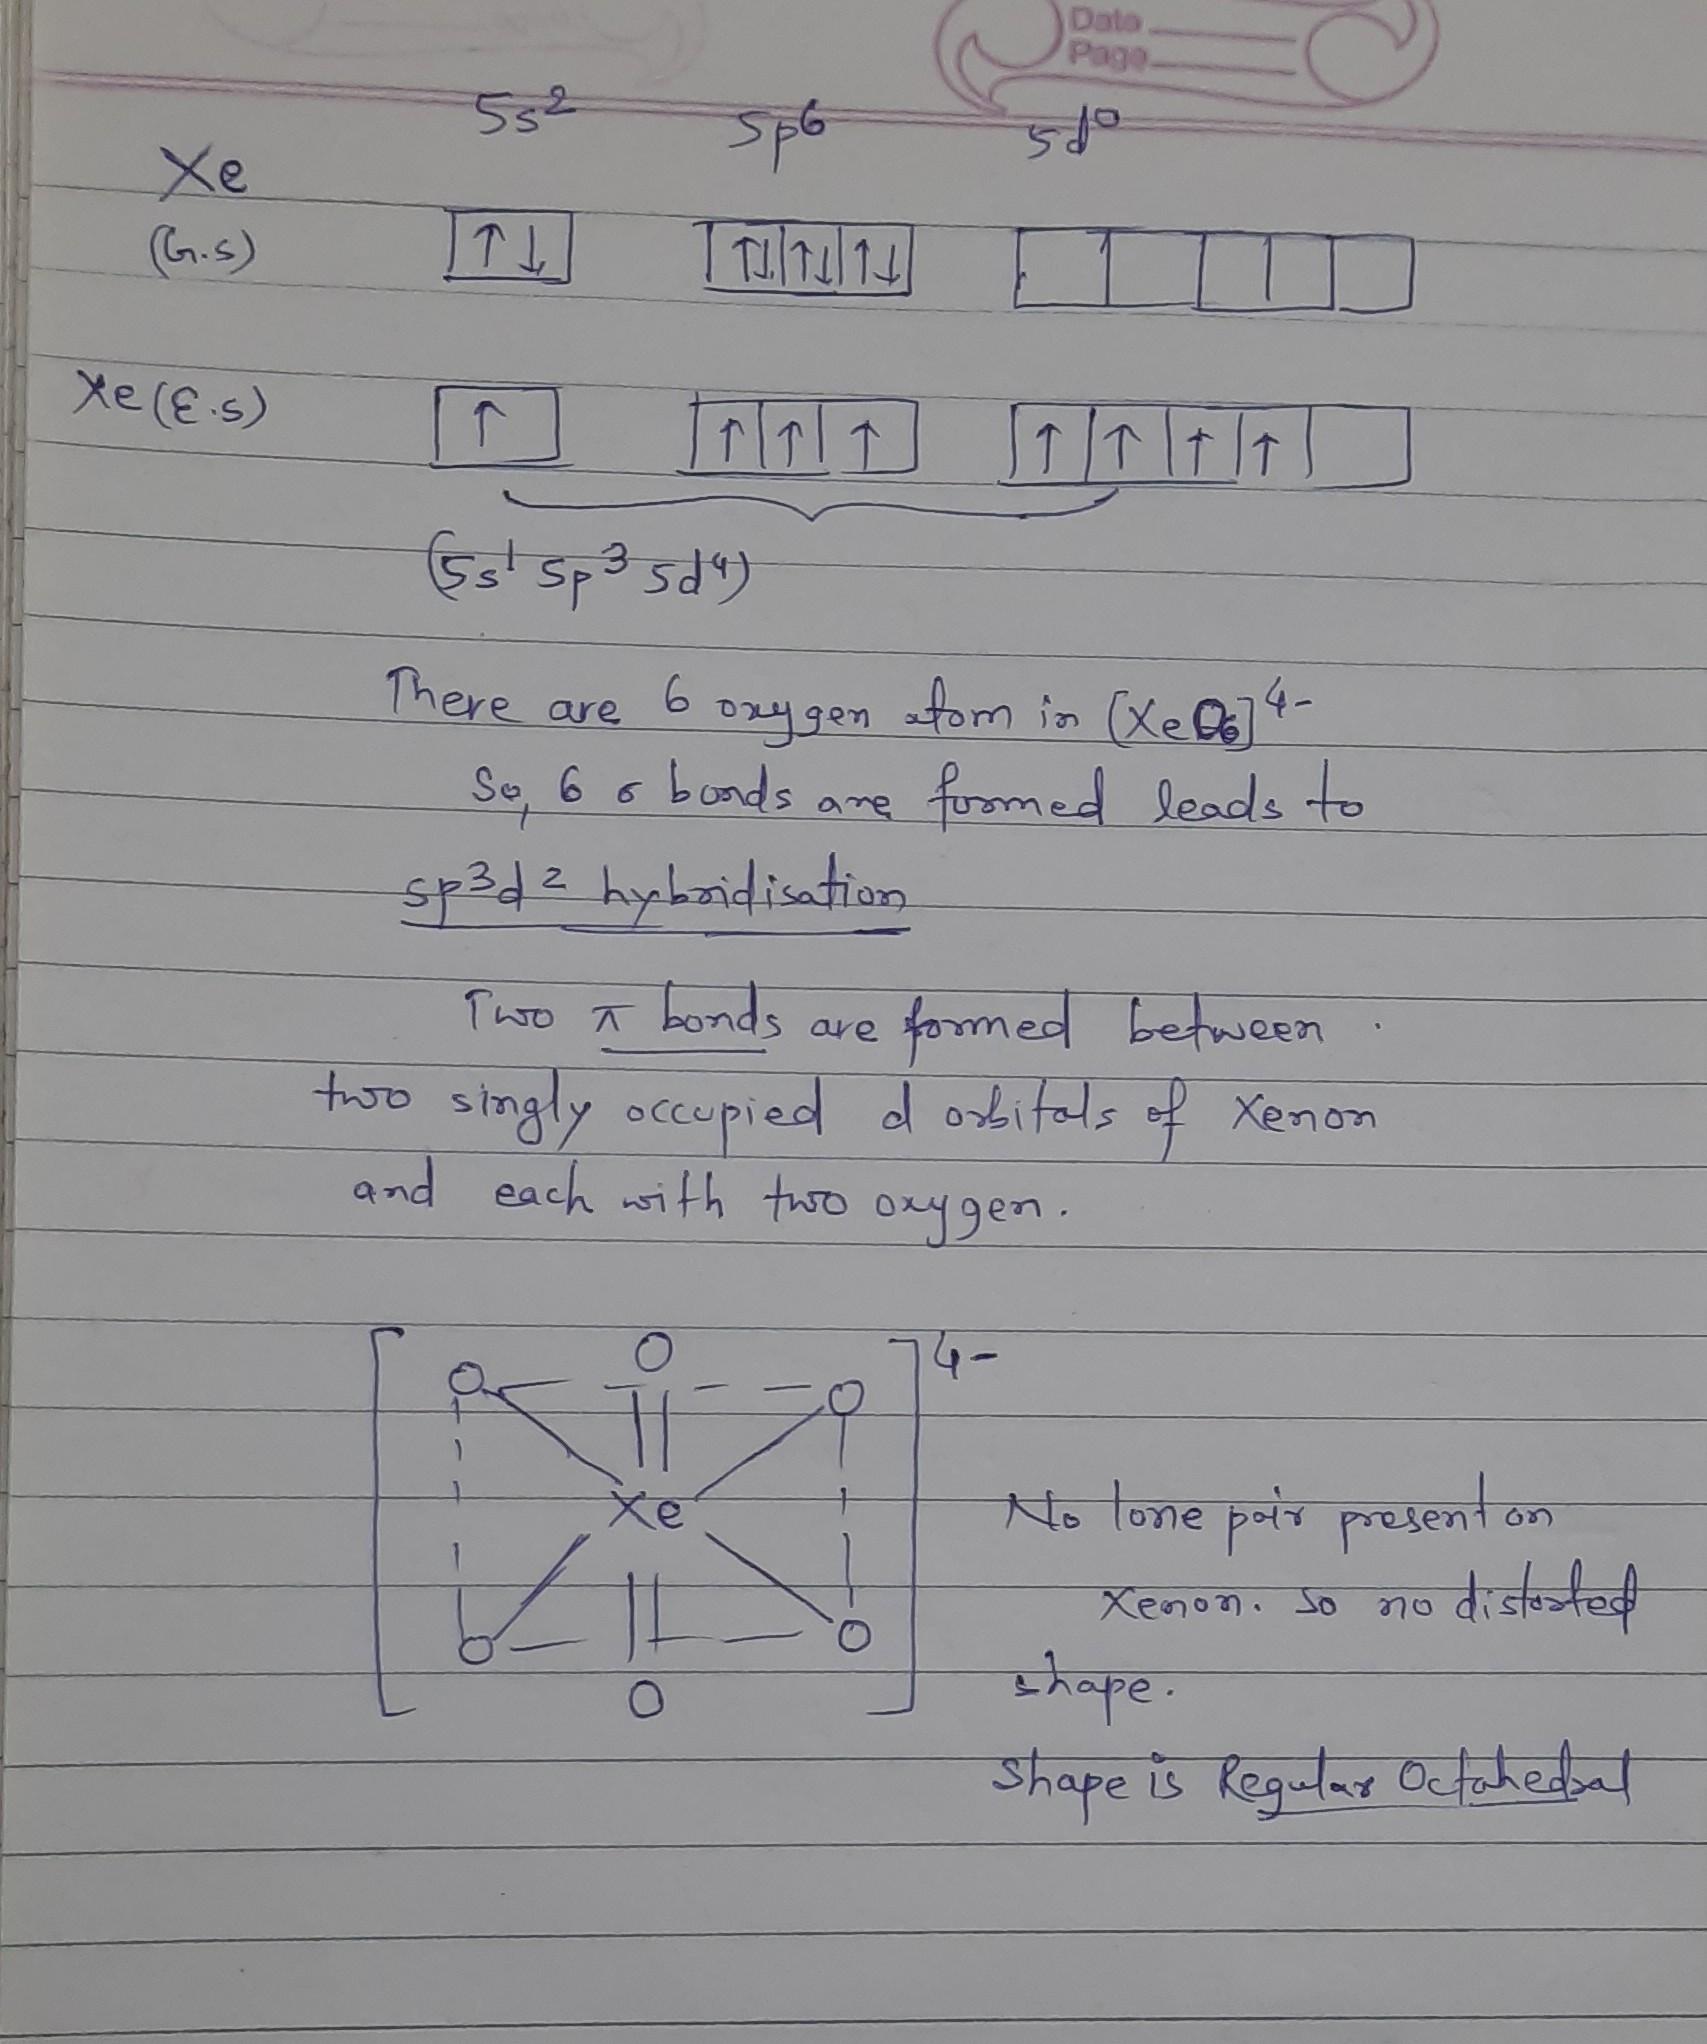 Date
Page
5s² 5p⁶ 5d⁰
Xe
(G.S) ↑↓ ↑↓ ↑↓ ↑↓
Xe (E.S) ↑ ↑ ↑ ↑ ↑ ↑ ↑ ↑
(5s¹ 5p³ 5d⁴)
There are 6 oxygen atom in [XeO₆]⁴⁻
So, 6 σ bonds are formed leads to
sp³d² hybridisation
Two π bonds are formed between
two singly occupied d orbitals of Xenon
and each with two oxygen.
O 4-
O O
Xe
No lone pair present on
Xenon. So no distorted
O O
shape.
O
Shape is Regular Octahedral